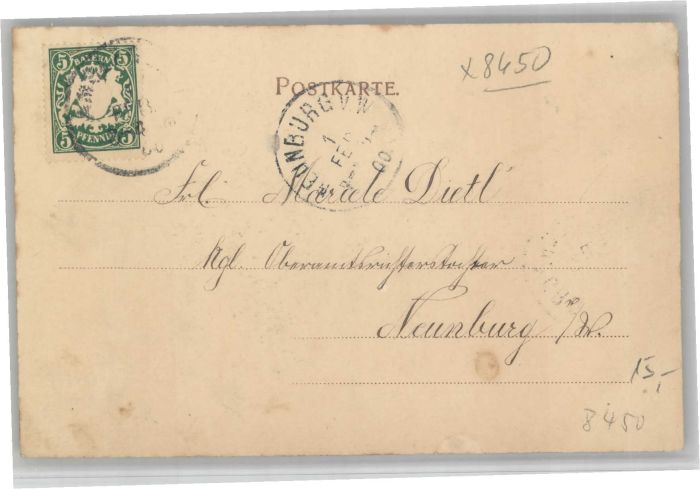 5 BAYERN 5
5 PFENNIG 5
x8450
POSTKARTE.
NEUNBURG V W
1
FEB
00
Frl. Dietl
Kgl. Oberamtsrichterstochter
Neunburg v/W.
15,-
8450